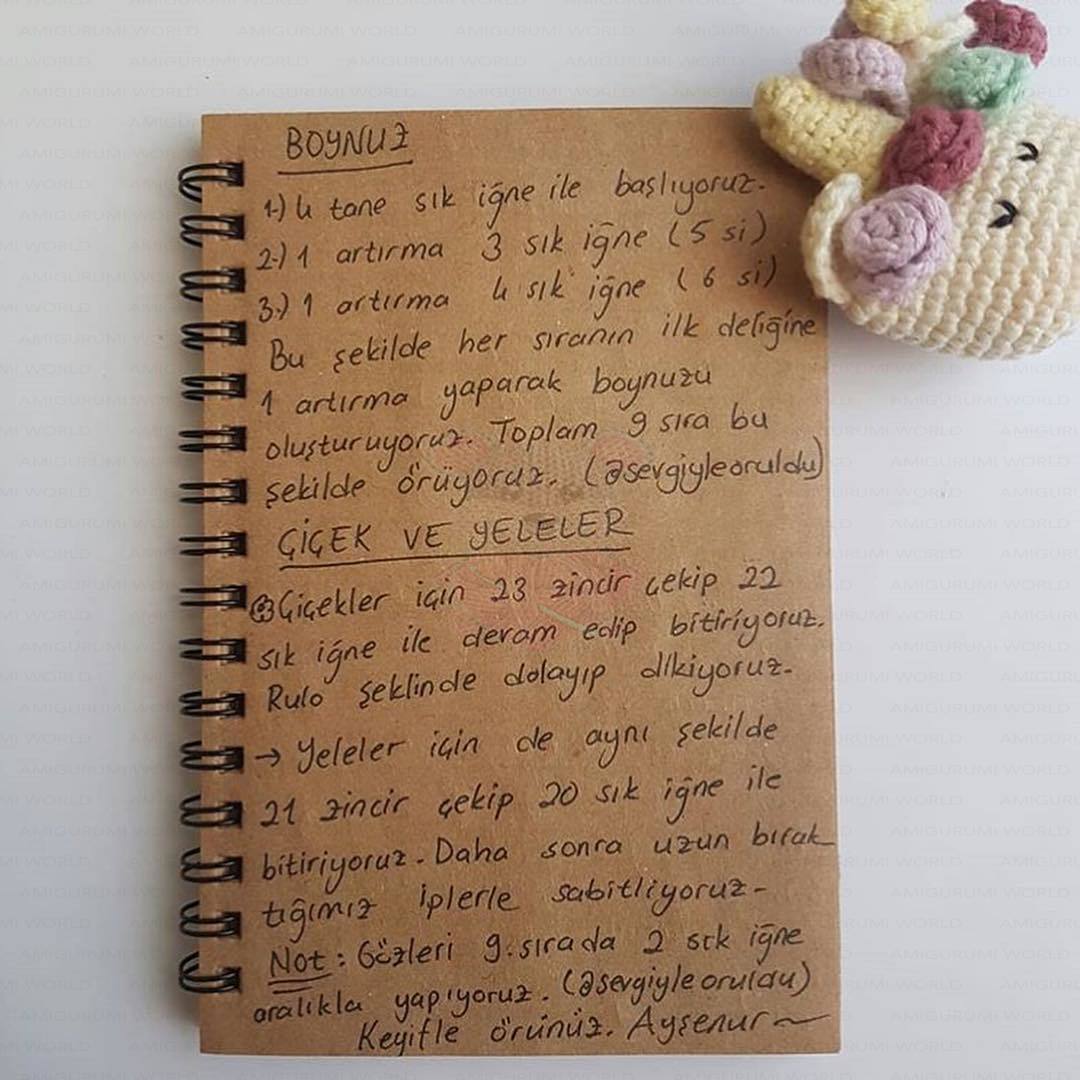 BOYNUZ
1-) 4 tane sık iğne ile başlıyoruz.
2-) 1 artırma 3 sık iğne (5 si)
3-) 1 artırma 4 sık iğne (6 si)
Bu şekilde her sıranın ilk deliğine
1 artırma yaparak boynuzu
oluşturuyoruz. Toplam 9 sıra bu
şekilde örüyoruz. (@sevgiyleoruldu)
ÇİÇEK VE YELELER
Çiçekler için 23 zincir çekip 22
sık iğne ile devam edip bitiriyoruz.
Rulo şeklinde dolayıp dikiyoruz.
→ Yeleler için de aynı şekilde
21 zincir çekip 20 sık iğne ile
bitiriyoruz. Daha sonra uzun bırak
tığımız iplerle sabitliyoruz-
Not: Gözleri 9. sırada 2 sık iğne
aralıkla yapıyoruz. (@sevgiyleoruldu)
Keyifle örünüz. Ayşenur
AMIGURUMI WORLD